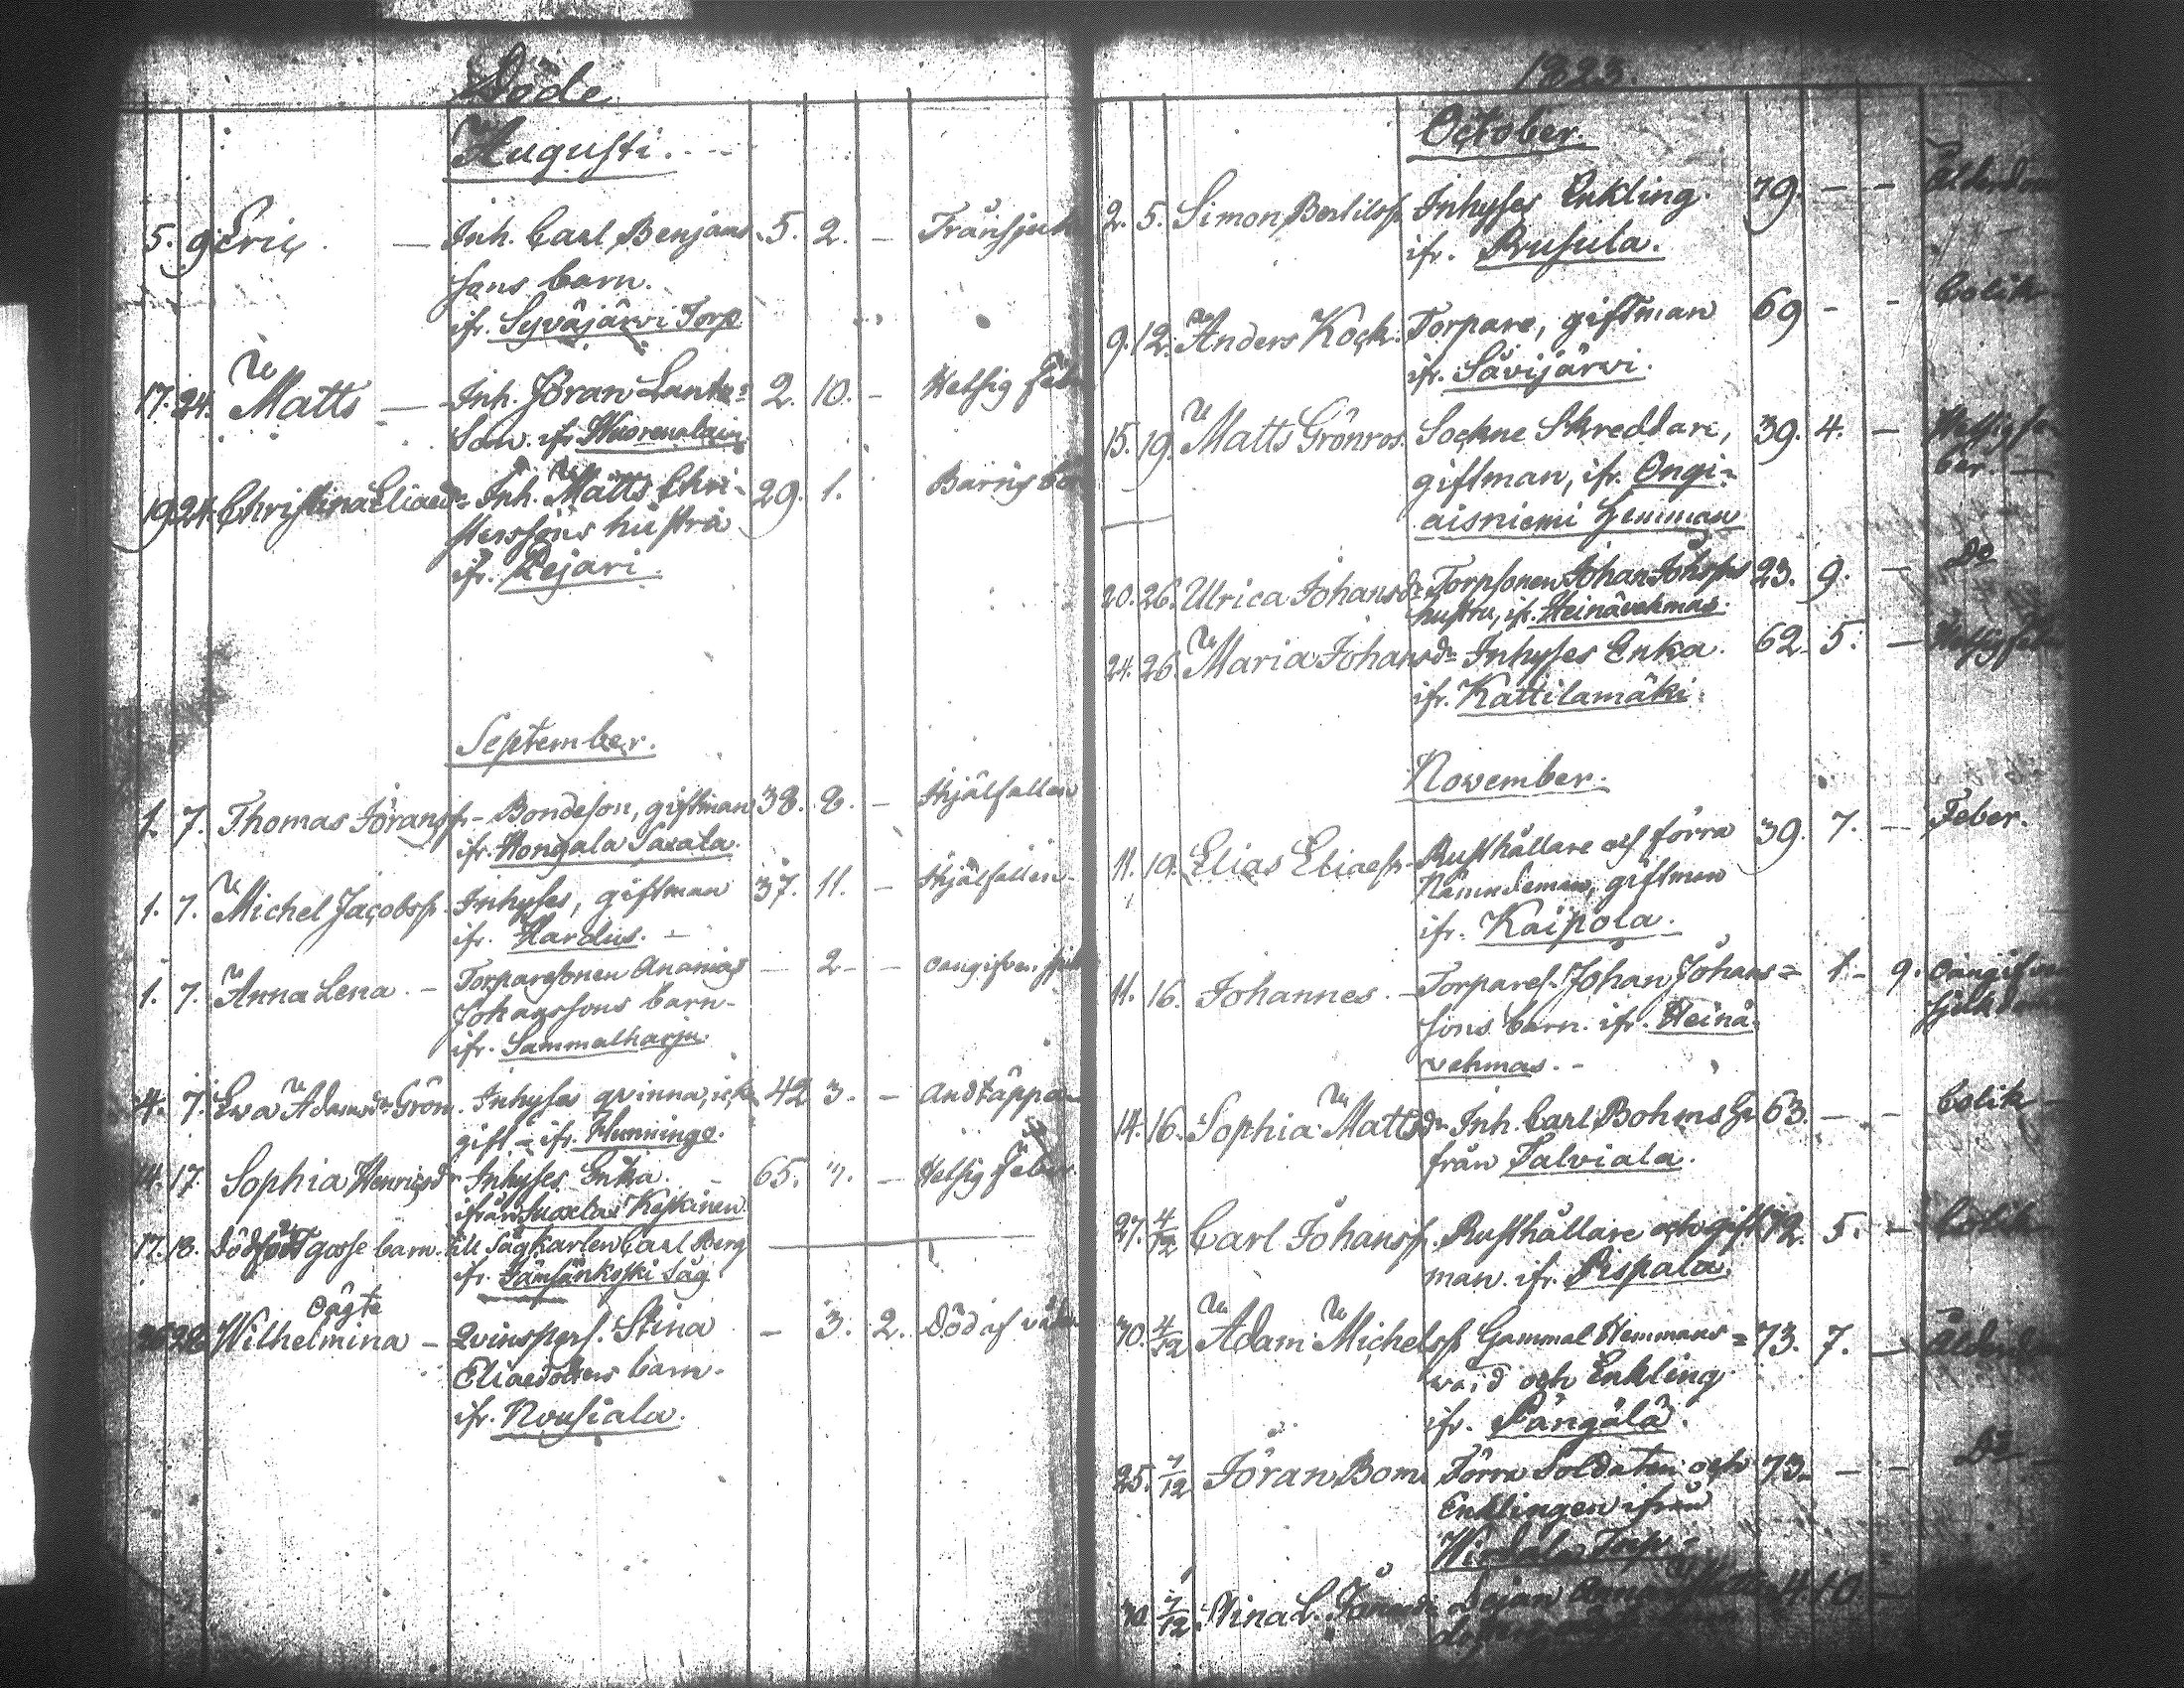 Döde
Augusti.
5. 9. Eric. — Inh. Carl Benjams- 5. 2. — Trånsjuk
sons barn.
ifr. Syväjärvi Torp
17. 24. Matts — Inh. Jöran Lants= 2. 10. — Hetsig Feb
ifr.
19 24. Christina Eliaed:r Inh. Matts Chri- 29. 1. Barnsbör
sterssons hustru
ifr. Rejari.
September.
1. 7. Thomas Göranss. Bondeson, giftman 38. 8. — Ihjälfallen
ifr. Hongala Saxala.
1. 7. Michel Jacobss. Inhyses, giftman 37. 11. — Ihjälfallen
ifr. Hardus. —
1. 7. Anna Lena. — Torparesonen Ananias — 2 — — oangifven sjuk
Johanssons barn.
ifr. Sammalharju
4. 7. Ewa Adamsd:r Grön. Inhyses qvinna, icke 42 3. — Andtäppa
gift — ifr. Hunningo.
14. 17. Sophia Henricsd:r Inhyses Enka. 65. 7. — Hetsig Feber
ifrån Keskinen
17. 18. Dödfödt gosse barn. till Sågkarlen Carl Berg
ifr. Jämsänkoski Såg
oägta
26 28 Wilhelmina — Qvinspers. Stina — 3. 2. Död af våda
Eliaedotters barn.
ifr. Nousiala.
1823.
October.
2. 5. Simon Bertilss. Inhyses Enkling 79. — — Ålderdom
ifr. Rusula.
9. 12. Anders Kock. Torpare, giftman 69 — — Colik
ifr. Säyijärvi.
15. 19. Matts Grönros. Sockne Skreddare, 39. 4. — Hetsig fe-
giftman, ifr. Ongi= ber. —
aisniemi Hemman
20. 26. Ulrica Johansd:r Torpsonen Johan Johss:s 23. 9. — D:o
hustru, ifr. Heinävehmas.
24. 26. Maria Johansd:r Inhyses Enka. 62. 5. — Hetsig feb
ifr. Kattilamäki.
November.
11. 19. Elias Eliaess. Rusthållare och förra 39. 7. — Feber.
Nämndeman, giftman
ifr. Kaipola.
11. 16. Johannes. — Torpares. Johan Johans= 1. 9. oangifven
sons barn. ifr. Heinä= sjukdom
vehmas. —
14. 16. Sophia Mattsd:r Inh. Carl Bohms Hu 63. — — Colik —
från Talviala.
27. 4/12 Carl Johanss. Rusthållare och gift 72. 5. — Colik
man. ifr. Pispala.
30. 4/12 Adam Michelss. Gammal Hemmans= 73. 7. — Ålderdom
och Enkling
ifr. Pängälä.
25. 7/12 Jöran Bom. Förra Soldaten och 73. — — D:o
Enklingen ifrån
Torp
30. 7/12 10.